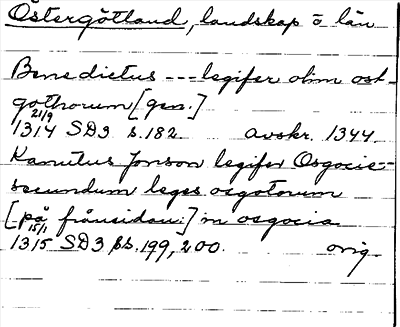 Östergötland, landskap o län
Benedictus --- legifer olim ost-
gothorum [gen.]
21/9
1314 SD3 s. 182. avskr. 1344.
Kanutus Jonson legifer Osgocie --
secundum leges osgotorum
[på frånsidan:] in osgocia
15/1
1315 SD3 ss. 199, 200. orig.